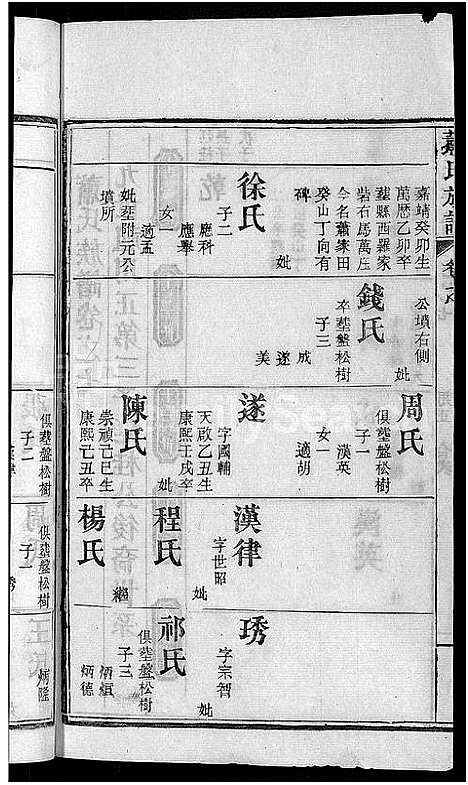 蕭氏族譜
卷之七
嘉靖癸卯生
萬曆乙卯卒
塟縣西羅家
砦石馬萬庄
今名蕭家田
癸山丁向有
碑
妣
徐氏
子二
應科
應舉
女一
適孟
妣塟附元公
墳所
公墳右側
妣
錢氏
卒塟盤松樹
子三
成
遂
美
周氏
俱塟盤松樹
子一
漢英
女一
適胡
遂
字國輔
天啟乙丑生
康熙壬戌卒
妣
陳氏
崇禎己巳生
康熙己丑卒
漢律
字世昭
妣
程氏
繼
楊氏
琇
字宗智
妣
祁氏
俱塟盤松樹
子三
炳縝
炳德
俱塟盤松樹
子二
俱塟盤松樹
子一
琇
炳隆